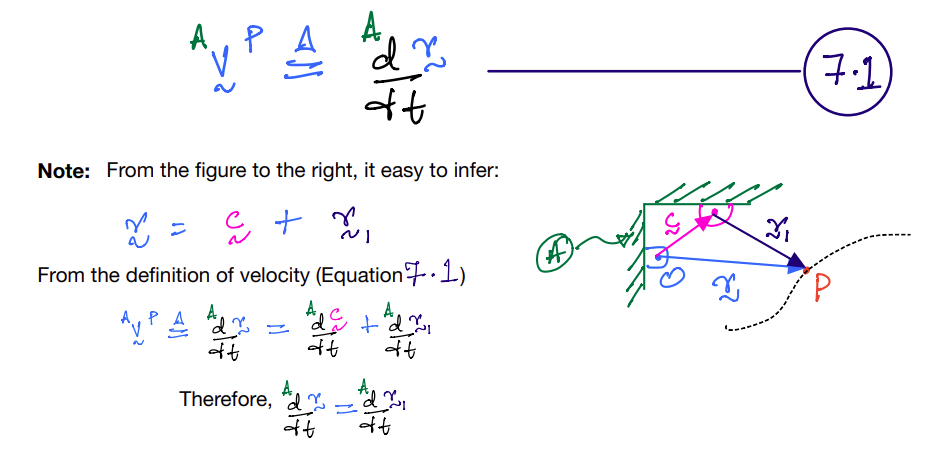 ᴬv̰ᴾ ≜ ᴬdr̰/dt 7.1
Note: From the figure to the right, it easy to infer:
r̰ = c̰ + r̰₁
From the definition of velocity (Equation 7.1)
ᴬv̰ᴾ ≜ ᴬdr̰/dt = ᴬdc̰/dt + ᴬdr̰₁/dt
Therefore, ᴬdr̰/dt = ᴬdr̰₁/dt
A
c̰
r̰₁
O
r̰
P